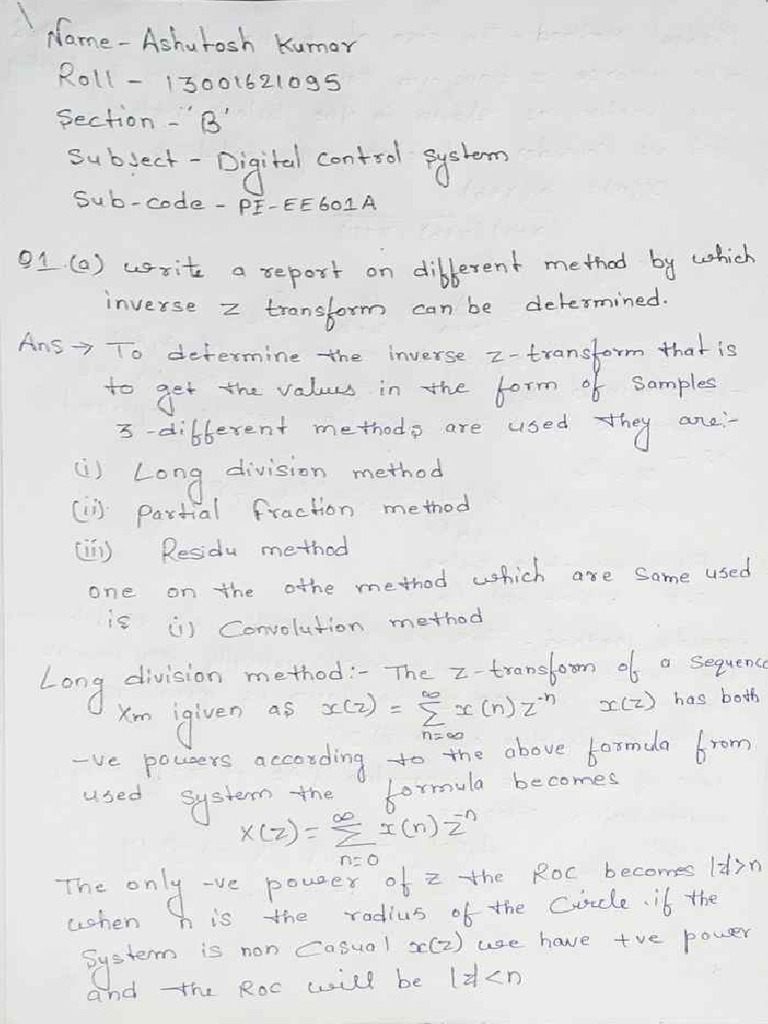 Name - Ashutosh Kumar
Roll - 13001621095
Section - "B'
Subject - Digital Control System
Sub-code - PI-EE601A
Q1.(a) write a report on different method by which
inverse z transform can be determined.
Ans → To determine the inverse z-transform that is
to get the values in the form of samples
3-different methods are used they are:-
(i) Long division method
(ii) partial fraction method
(iii) Residu method
one on the othe method which are same used
is (i) Convolution method
Long division method:- The z-transform of a sequence
Xm igiven as x(z) = ∞ Σ n=∞ x(n) z⁻ⁿ x(z) has both
-ve powers according to the above formula from
used system the formula becomes
X(z) = ∞ Σ n=0 x(n) z⁻ⁿ
The only -ve power of z the ROC becomes |z|>n
when n is the radius of the Circle. if the
System is non Casual x(z) we have +ve power
and the ROC will be |z|<n